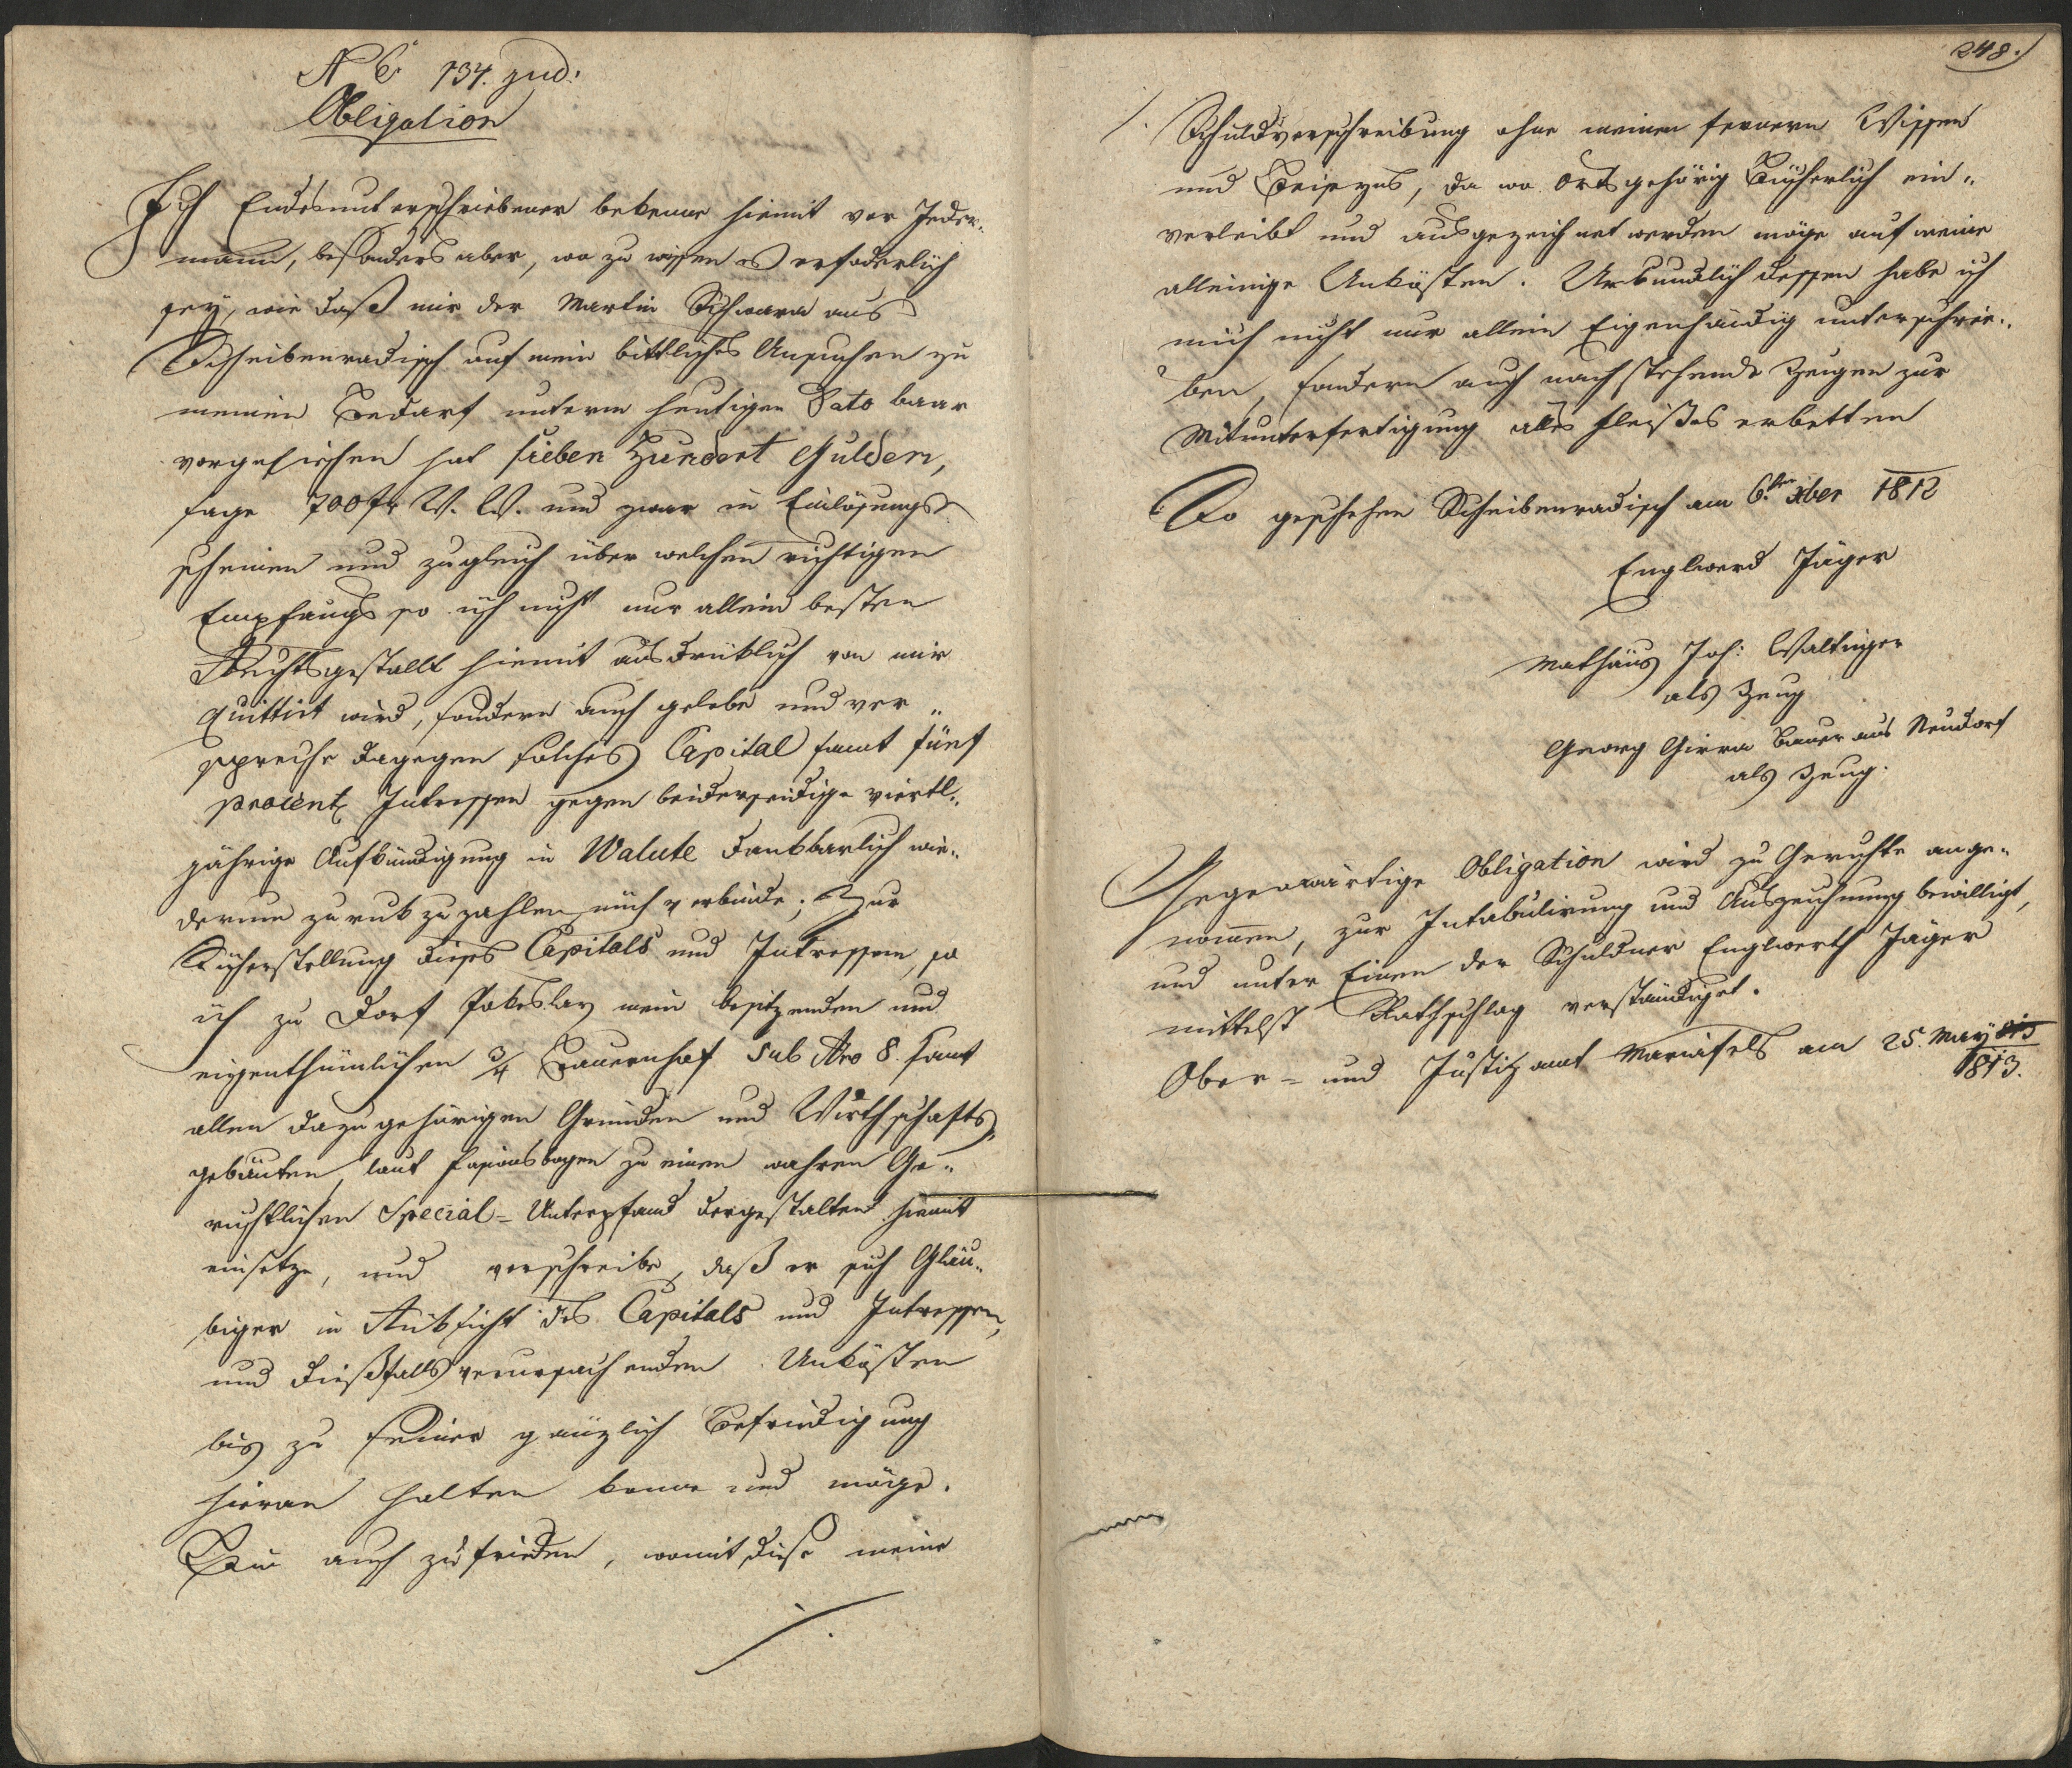 N E 134. jud:
Obligation
Ich Endesunterschriebener bekenne hiemit vor Jeder„
mann, besonders aber, wo zu wissen es erfoderlich
sey, wie daß mir der Martin Schwara aus
Scheibenradisch auf mein bittliches Ansuchen zu
meinen Bedarf unterm heutigen Dato baar
vorgeliehen hat sieben Hundert Gulden,
sage 700 fr W. W. und zwar in Einlösungs
scheinen und zugleich über welchen richtigen
Empfangs so ich nicht nur allein besten
Rechtsgestallt hiemit ausdrüklich von mir
quittirt wird, sondern auch gelobe und ver„
spreche dagegen solches Capital samt fünf
procent Intressen gegen beiderseidige viertl„
jährige Aufkündigung in Walute dankbarlich wie„
derum zuruk zu zahlen mich verbinde; Zur
Sicherstellung dieses Capitals und Intressen, so
ich zu Dorf Pokeslav mein besitzenden und
eigenthümlichen 3/4 Bauernhof sub Nro 8. samt
allen dazu gehörigen Gründen und Wirthschafts„
gebäuten, laut Fasionsbogen zu einen wahren Ge„
richtlichen Special-Unterpfand dergestalten hiemit
einsetze, und verschreibe, daß er sich Gläu„
biger in Rüksicht des Capitals und Intressen,
und dießfalls verursachenden Unkösten
bis zu seiner gänzlich Befriedigung
hieran halten könne und möge.
Bin auch zufrieden, womit diese meine
/.
248.
/. Schuldverschreibung ohne meinen fernern Wissen
und Beiseyns, da wo Orts gehörig Bücherlich ein„
verleibt und ausgezeichnet werden möge auf meine
alleinige Unkösten. Urkundlich dessen habe ich
mich nicht nur allein Eigenhändig unterschrie„
ben, sondern auch nachstehende Zeugen zur
Mitunterfertigung alles Fleißes erbetten
So geschehen Scheibenradisch am 6ten xber 1812
Englwerd Jäger
Mathäus Joh: Waltinger
als Zeug
Georg Girra Bauer aus Neudorf
als Zeug.
Gegenwärtige Obligation wird zu Gerichte ange„
nommen, zur Intabulirung und Auszeichnung bewilligt,
und unter Einen der Schuldner Englwerth Jäger
mittelst Rathschlag verständiget.
Ober- und Justizamt Mariafels am 25. May
1813.